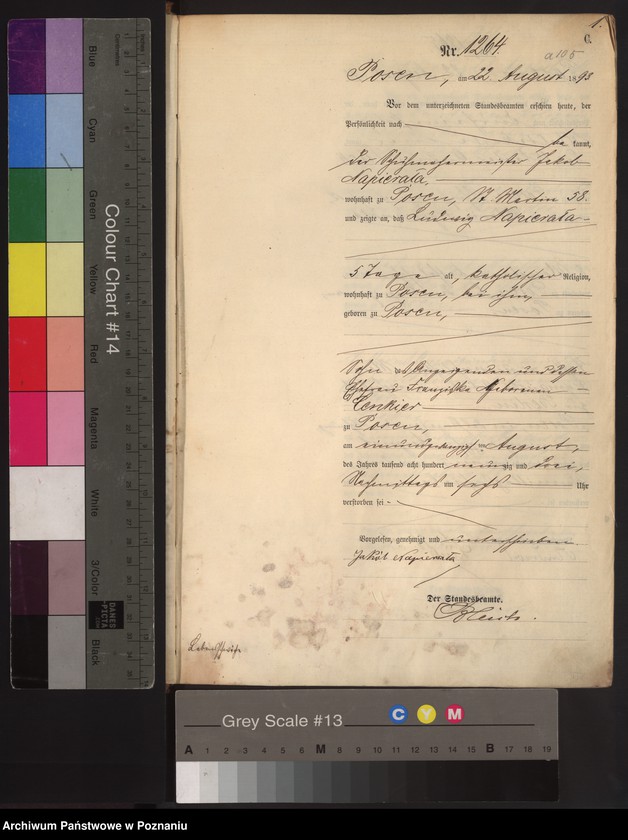 1.
C.
Nr. 1264.
a 105
Posen, am 22. August 1893
Vor dem unterzeichneten Standesbeamten erschien heute, der
Persönlichkeit nach
be kannt,
der Schuhmachermeister Jakob
Napierała
wohnhaft zu Posen, St. Martin 58.
und zeigte an, daß Ludwig Napierała
5 Tage alt, katholischer Religion,
wohnhaft zu Posen, bei ihm,
geboren zu Posen,
Sohn des Anzeigenden und dessen
Ehefrau Franziska geborenen
Cenkier
zu Posen,
am einundzwanzigsten August,
des Jahres tausend acht hundert neunzig und drei,
Nachmittags um sechs Uhr
verstorben sei
Vorgelesen, genehmigt und unterschrieben
Jakób Napierała
Der Standesbeamte.
Lebensschwäche
Colour Chart #14
Blue
Cyan
Green
Yellow
Red
Magenta
White
3/Color
Black
DANES
-PICTA
Grey Scale #13
C Y M
A 1 2 3 4 5 6 M 8 9 10 11 12 13 14 15 B 17 18 19
Archiwum Państwowe w Poznaniu